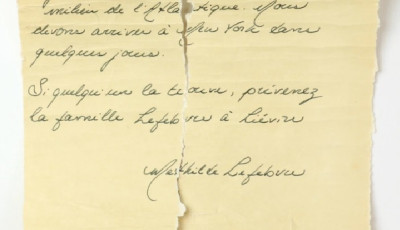 milieu de l'Atlantique. Nous
devons arriver à New York dans
quelques jours.
Si quelqu'un la trouve, prévenez
la famille Lefebvre à Liévin
Mathilde Lefebvre